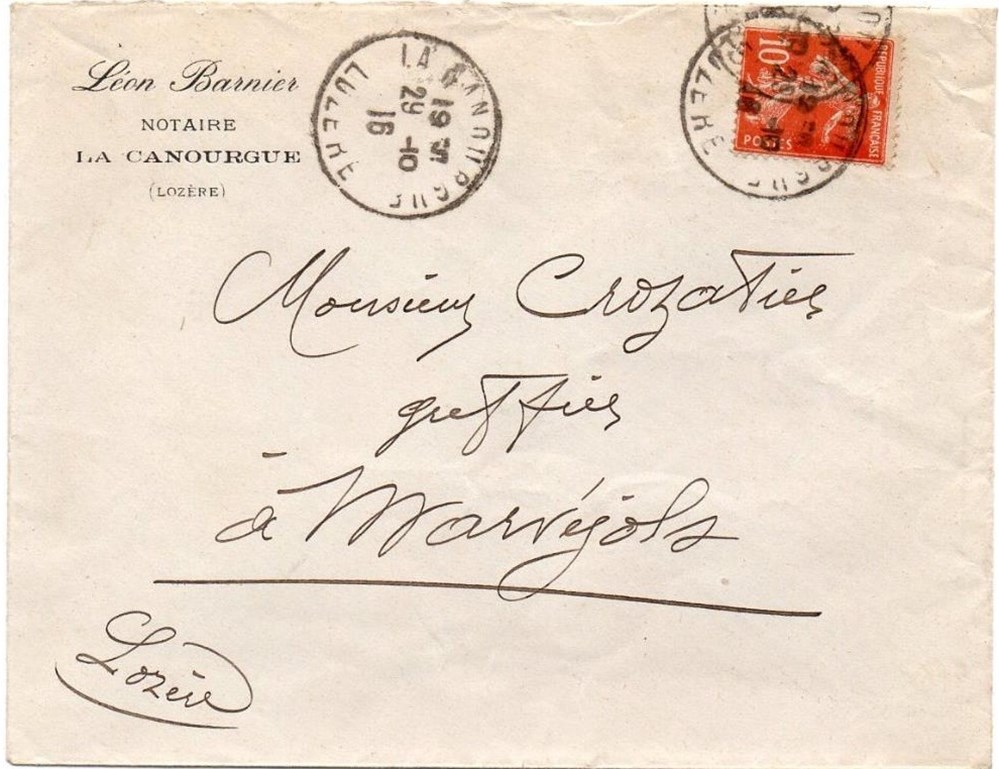 Léon Barnier
NOTAIRE
LA CANOURGUE
(LOZÈRE)
LA CANOURGUE
19
29 -10
16
LOZERE
10
REPUBLIQUE FRANÇAISE
POSTES
LOZERE
Monsieur Crozatier
greffier
à Marvéjols
Lozère